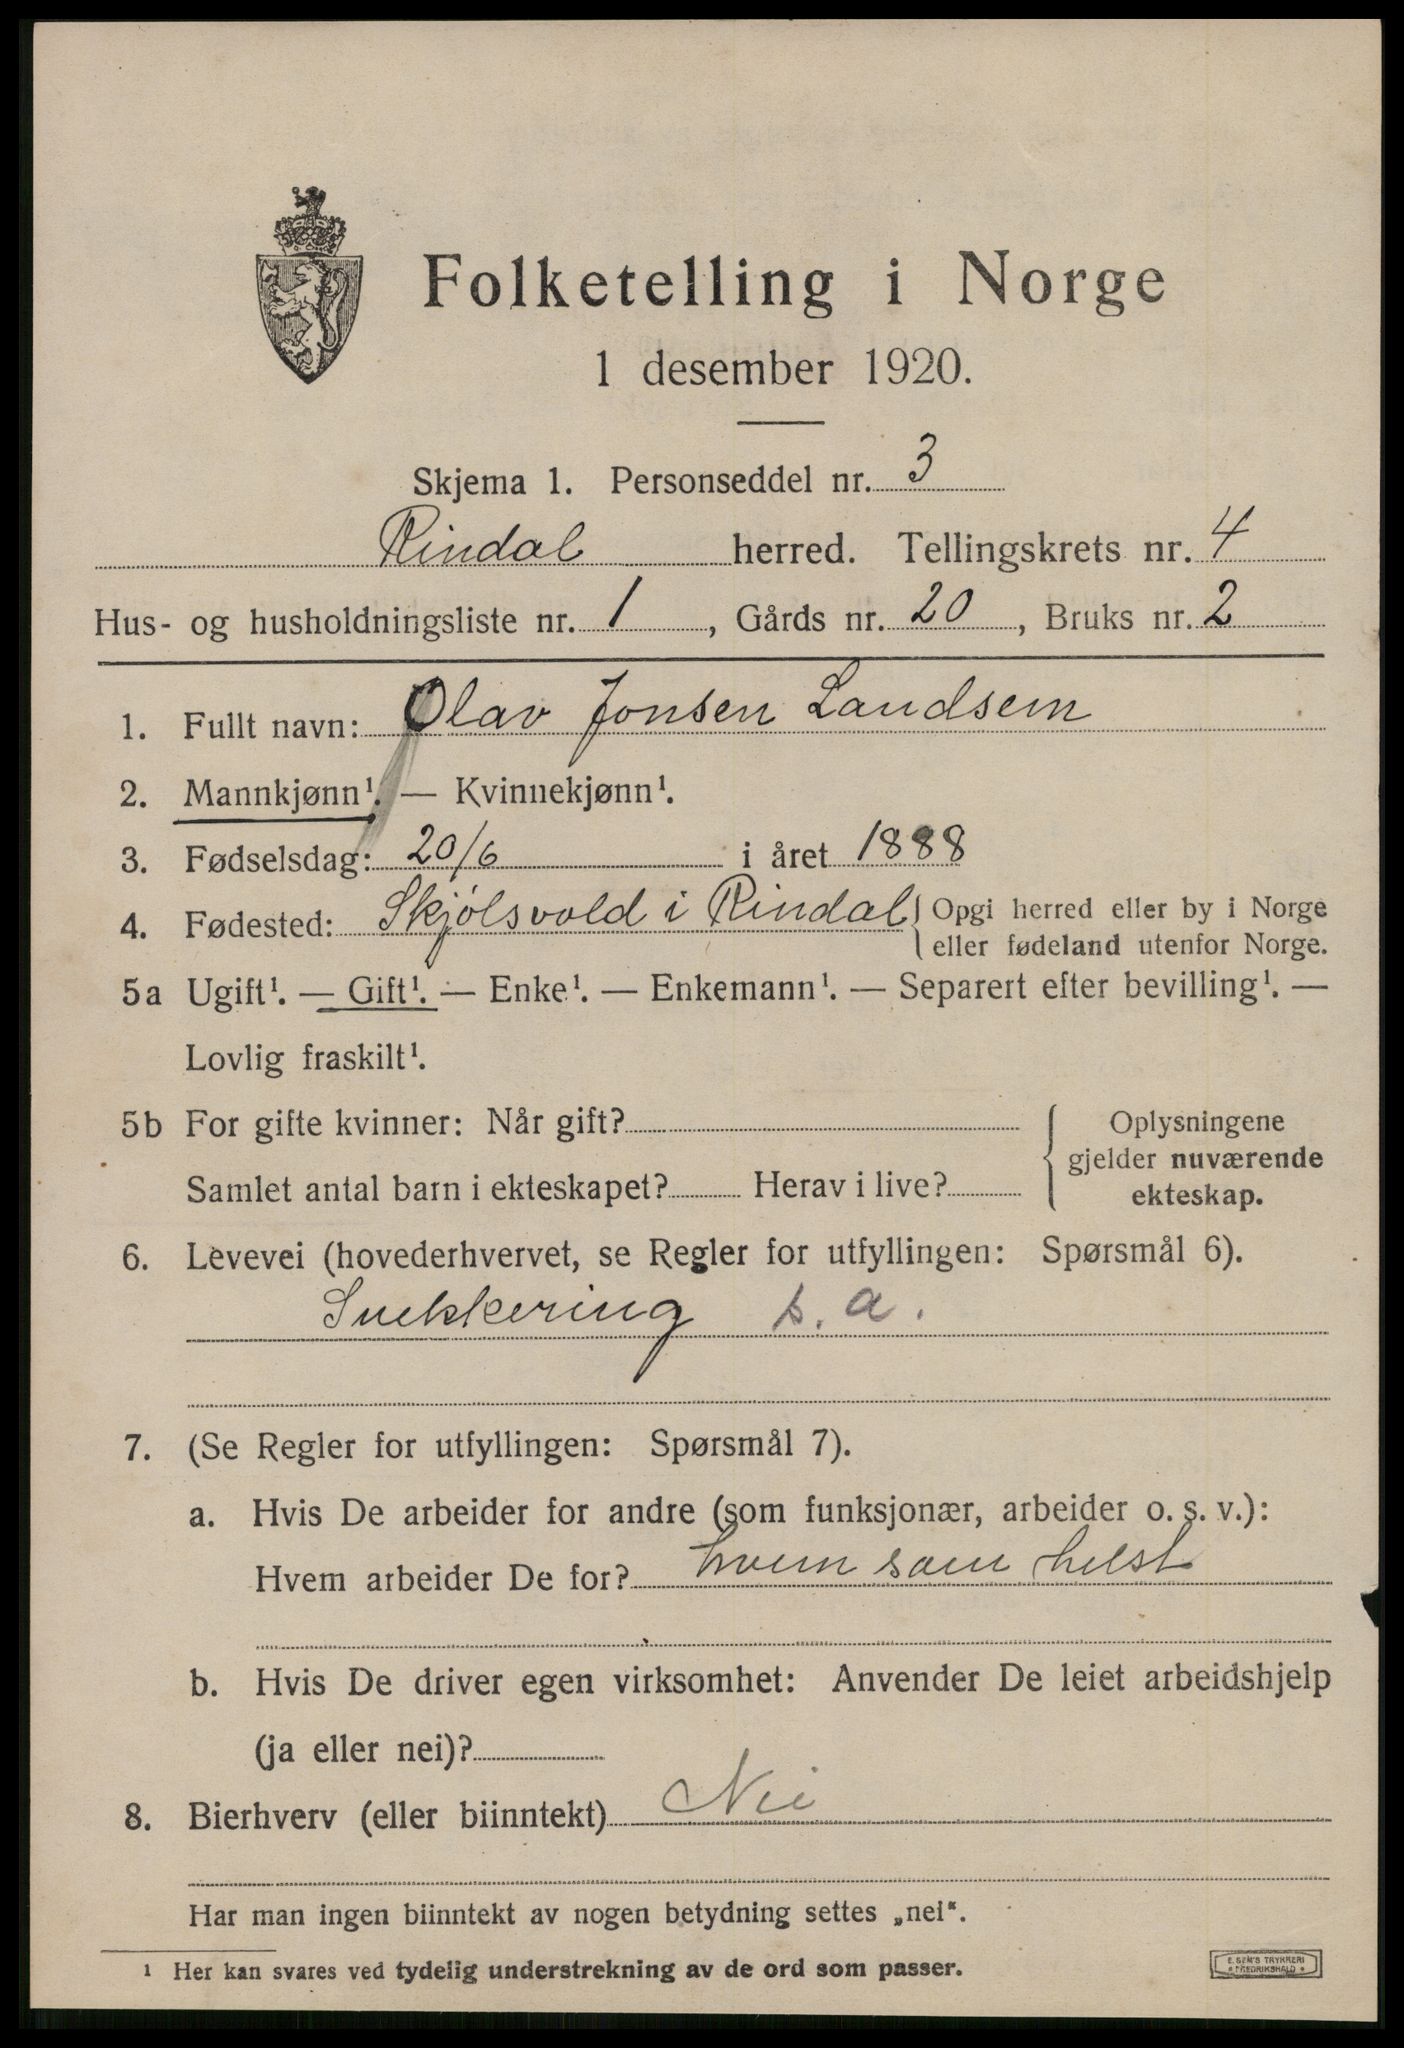 Folketelling i Norge
1 desember 1920.
Skjema 1. Personseddel nr. 3
Rindal herred. Tellingskrets nr. 4
Hus- og husholdningsliste nr. 1, Gårds nr. 20, Bruks nr. 2
1. Fullt navn: Olav Jonsen Landsem
2. Mannkjønn¹. — Kvinnekjønn¹.
3. Fødselsdag: 20/6 i året 1888
4. Fødested: Skjølsvold i Rindal { Opgi herred eller by i Norge
eller fødeland utenfor Norge.
5a Ugift¹. — Gift¹. — Enke¹. — Enkemann¹. — Separert efter bevilling¹. —
Lovlig fraskilt¹.
5b For gifte kvinner: Når gift?
Samlet antal barn i ekteskapet? Herav i live?
Oplysningene
gjelder nuværende
ekteskap.
6. Levevei (hovederhvervet, se Regler for utfyllingen: Spørsmål 6).
Snekkering s. a.
7. (Se Regler for utfyllingen: Spørsmål 7).
a. Hvis De arbeider for andre (som funksjonær, arbeider o. s. v.):
Hvem arbeider De for? hvem som helst
b. Hvis De driver egen virksomhet: Anvender De leiet arbeidshjelp
(ja eller nei)?
8. Bierhverv (eller biinntekt) Nei
Har man ingen biinntekt av nogen betydning settes „nei“.
¹ Her kan svares ved tydelig understrekning av de ord som passer.
E. SEM'S TRYKKERI
* FREDRIKSHALD *